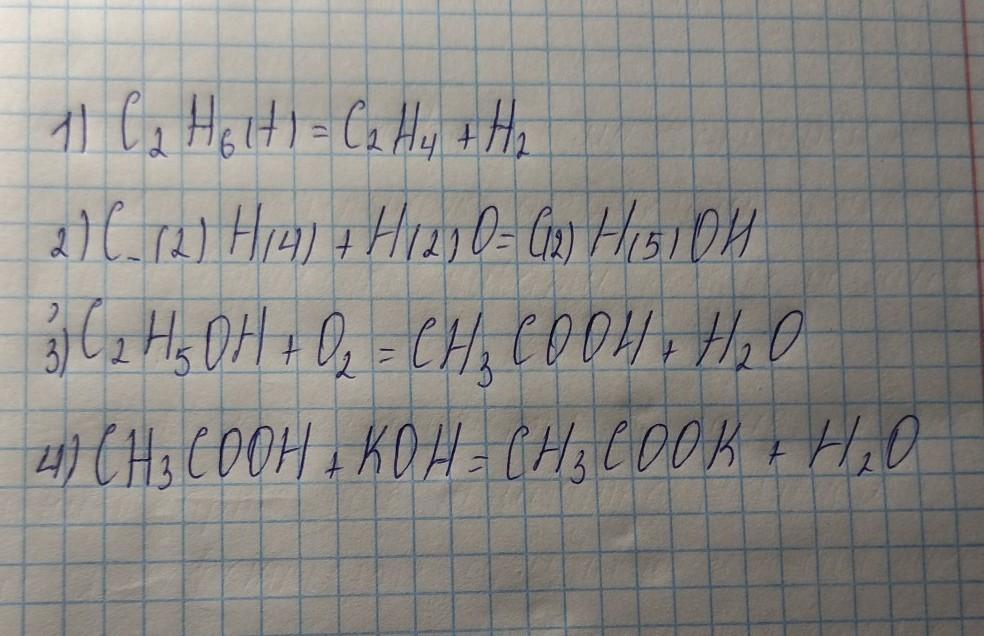 1) C₂H₆(t) = C₂H₄ + H₂
2) C_(2)H(4) + H(2)O = C(2)H(5)OH
3) C₂H₅OH + O₂ = CH₃COOH + H₂O
4) CH₃COOH + KOH = CH₃COOK + H₂O